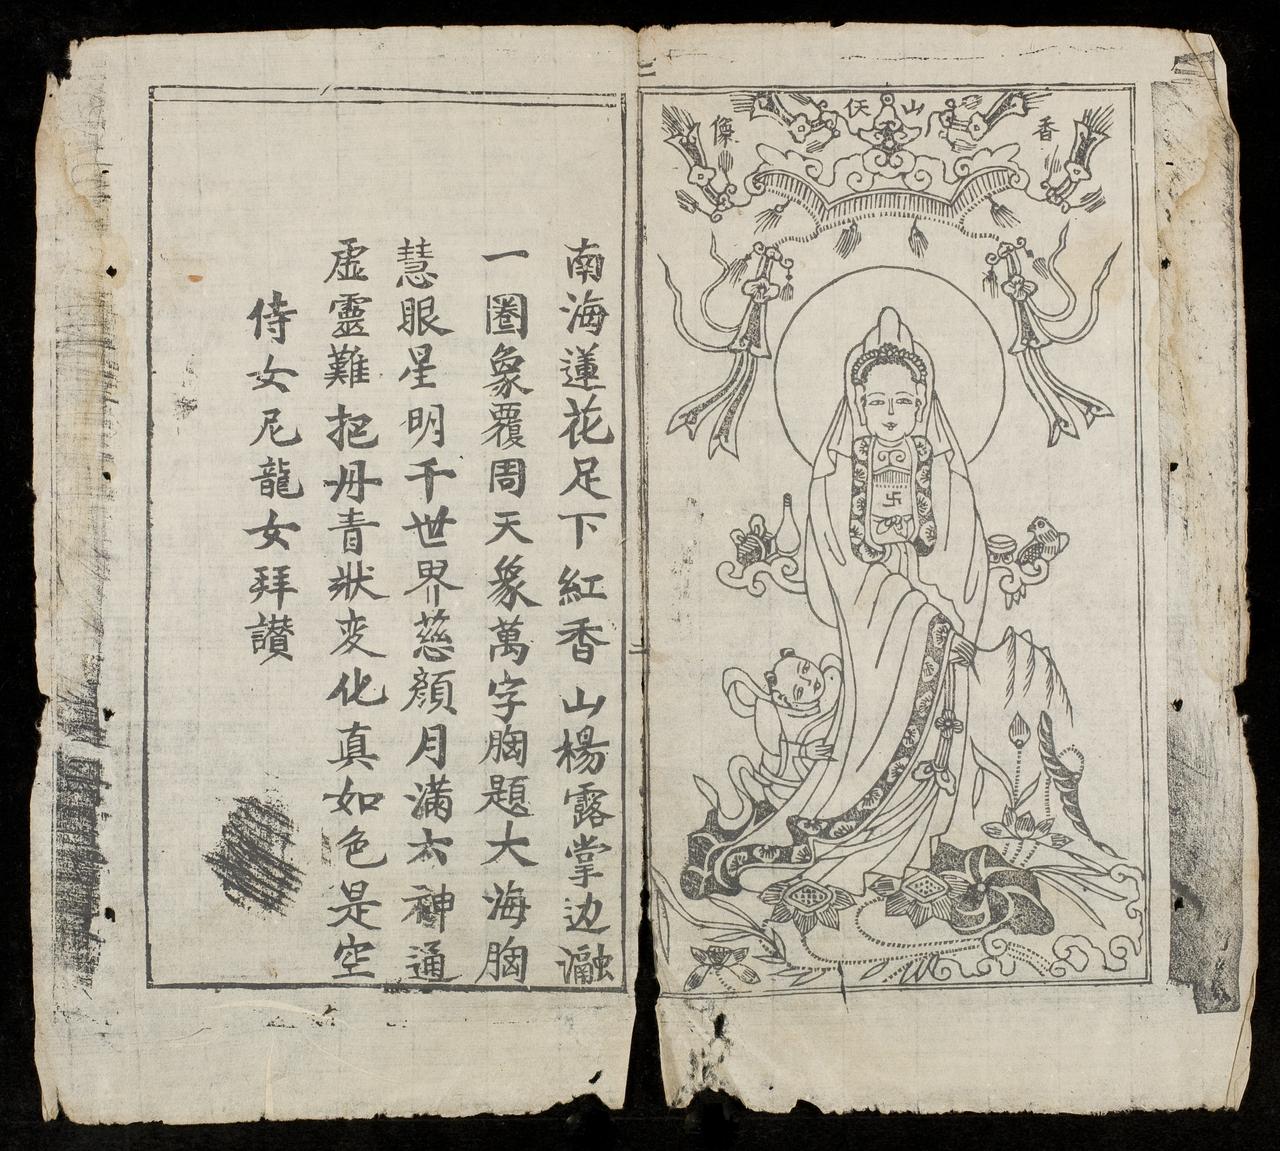 香山仸像
卍
南海蓮花足下紅香山楊露掌边瀜
一圈象覆周天象萬字胸題大海胸
慧眼星明千世界慈顔月满六神通
虚靈難把丹青狀变化真如色是空
侍女尼龍女拜讃